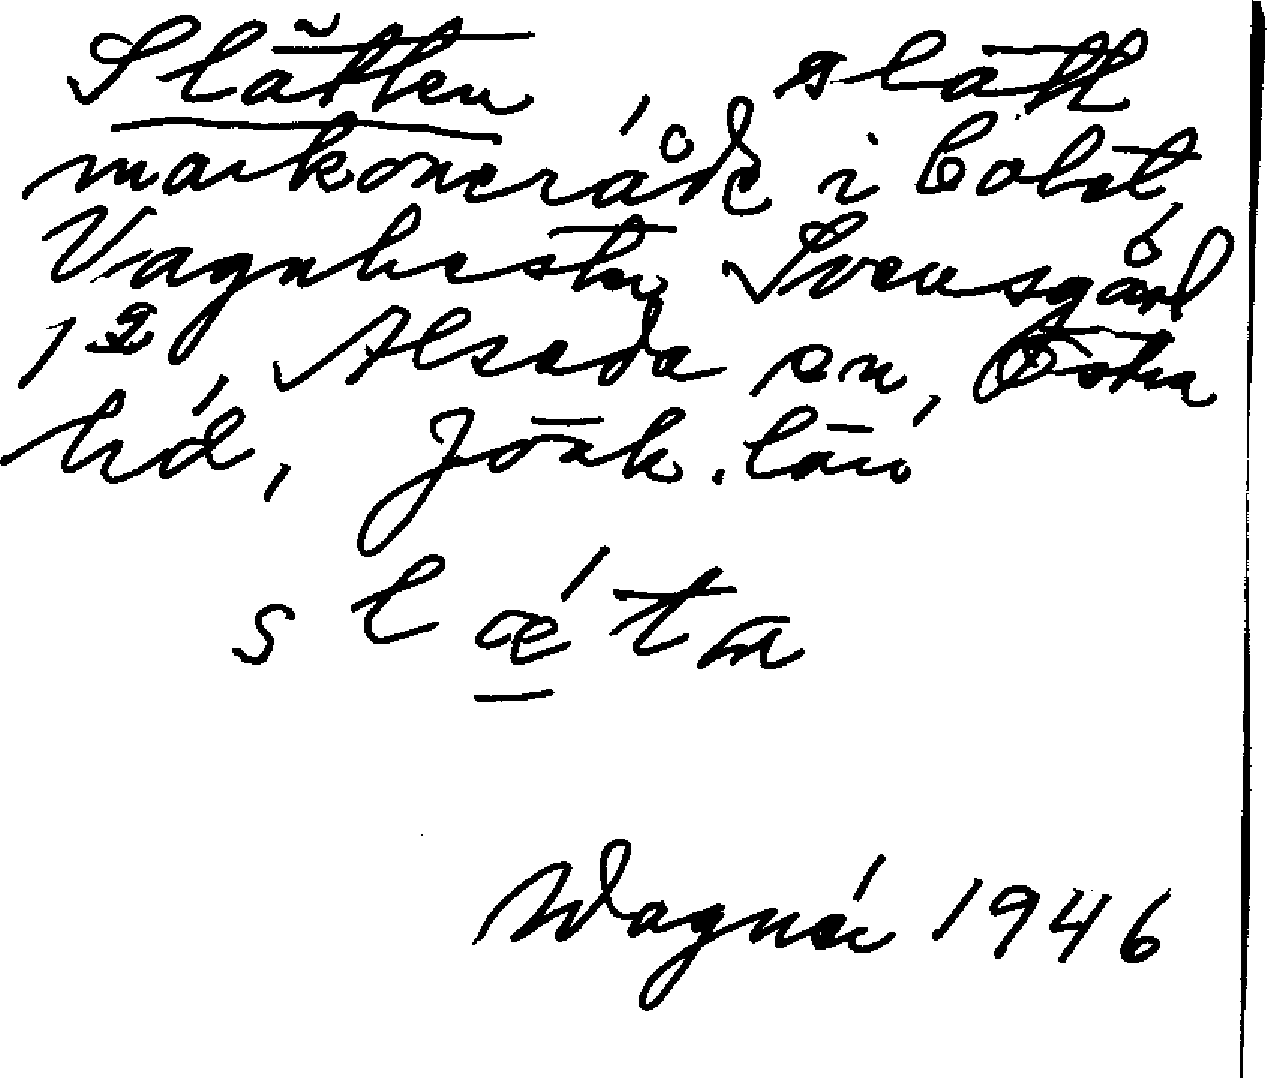 Slätten, slätt
markområde i bolst.
Vagnhester, Svensgård
1², Alseda sn, Östra
hd, Jönk. län
slǽta
Wagnér 1946